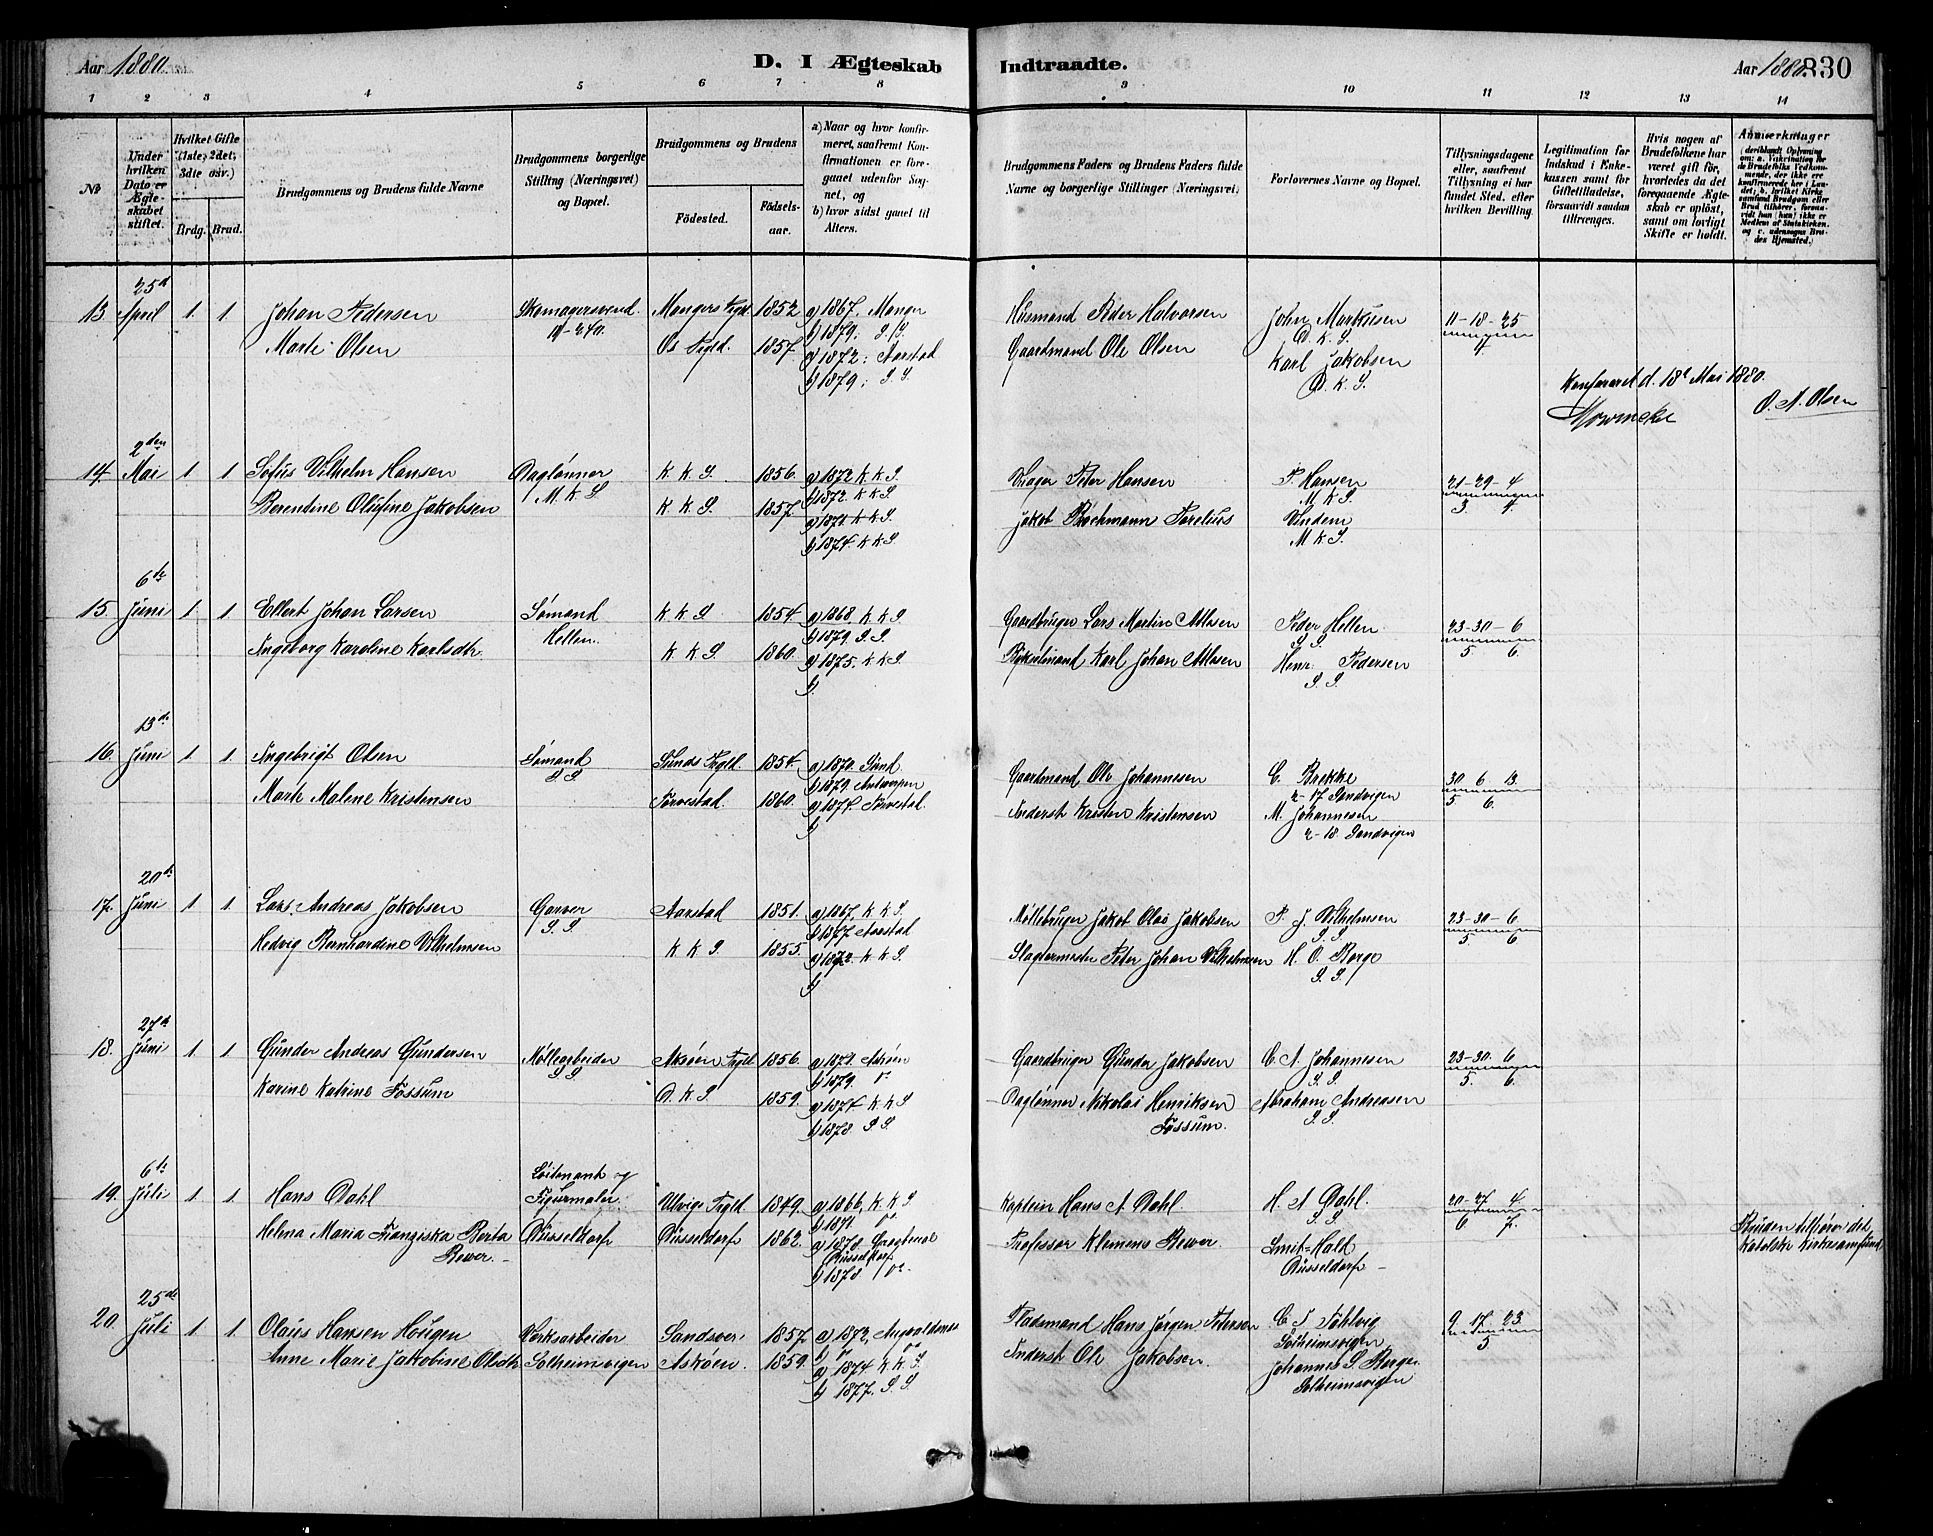 Aar 1880.
D. I Ægteskab
Indtraadte.
Aar 1880. 330
1 2 3 4 5 6 7 8 9 10 11 12 13 14
No
Under hvilken Dato er Ægteskabet stiftet.
Hvilket Gifte (1ste, 2det, 3die osv.)
Brdg. Brud.
Brudgommens og Brudens fulde Navne
Brudgommens borgerlige Stilling (Næringsvei) og Bopæl.
Brudgommens og Brudens
Fødested. Fødselsaar.
a) Naar og hvor konfirmeret, saafremt Konfirmationen er foregaaet udenfor Sognet, og
b) hvor sidst gaaet til Alters.
Brudgommens Faders og Brudens Faders fulde Navne og borgerlige Stillinger (Næringsvei)
Forlovernes Navne og Bopæl.
Tillysningsdagene eller, saafremt Tillysning ei har fundet Sted, efter hvilken Bevilling.
Legitimation for Indskud i Enkekassen samt for Giftetilladelse, forsaavidt saadan tiltrænges.
Hvis nogen af Brudefolkene har været gift før, hvorledes da det foregaaende Ægteskab er opløst, samt om lovligt Skifte er holdt.
Anmærkninger
13. 25de April 1. 1 Johan Pedersen Skomagersvend. Mangers Prgld. 1852 a) 1867. Manger Husmand Peder Halvorsen John Markusen D. K. S. 11-18-25
b) 1879. S. S.
Marte Olsen Os Prgld. 1857. a) 1872: Aarstad Gaardmand Ole Olsen Karl Jakobsen D. K. S. 4
b) 1879; S. S.
Konfereret d. 18de Mai 1880.
Mowinckel O. A. Olsen
14. 2den Mai 1 1 Sofus Vilhelm Hansen Daglønner M. K. S K. K. S. 1856. a) 1872 K. K. S. Peter Hansen P. Hansen M K S. 21-29-4
b) 1872. K K S.
Berendine Olufine Jakobsen K K S. 1857. a) 1871 K K S. Jakob Bochmann Vindem M K S. 3 4
b) 1874. K K S.
15. 6te Juni 1. 1 Ellert Johan Larsen Sømand Hellen. K K S 1854 a) 1868. K K S Gaardbruger Lars Martin Atlesen Peder Hellen S S. 23-30-6
b) 1879 S. S.
Ingeborg Karoline Karlsdtr. K. K S. 1860. a) 1875. K K S Karl Johan Atlesen Henr. Pedersen S S. 5 6.
b)
16. 13de Juni 1 1 Ingebrigt Olsen Sømand S S Sunds Prgld. 1854. a) 1870 Sund Gaardmand Ole Johannesen C. Brekke 2-17 Sandvigen 30 6 13.
b) 1879 Antwerpen
Marte Malene Kristensen Torvestad. 1860. a) 1874. Torvestad. Inderst Kristen Kristensen M. Johannesen 2-18. Sandvigen 5 6.
b)
17. 20de Juni 1 1. Lars Andreas Jakobsen Garver S. S. Aarstad 1851. a) 1867. K K S. Møllebruger Jakob Olai Jakobsen P. J. Vilhelmsen S. S. 23-30-6
b) 1877 Aarstad
Hedvig Bernhardine Vilhelmsen K K S. 1855. a) 1872 K K S. Slagtermester Peter Johan Vilhelmsen H. O. Berge S. S. 5 6
b)
18. 27de Juni 1. 1 Gunder Andreas Gundersen Møllearbeider S S. Askøen Prgld 1856. a) 1871 Askøen Gaardbruger Gunder Jakobsen C. A. Johannesen S. S. 23-30. 6
b) 1879. do
Karine Katrine Fossum D. K S. 1859. a) 1874 K K S Daglønner Nikolai Henriksen Fossum. Abraham Andreasen S. S. 5. 6.
b) 1878. S S.
19. 6te Juli 1. 1. Hans Dahl Løitenant og Figurmaler. Ulviks Prgld 1849. a) 1866. K K S Kaptein Hans A. Dahl. H. A. Dahl. S S. 20-27 4
b) 1871. do
Helena Maria Franziska Berta Bewer. Düsseldorf Düsseldorf 1862. a) 1878 Düsseldorf Professor Klemens Bewer. Smit-Hald Düsseldorf 6 7.
b) 1878 do
Bruden tilhører det Katolske Kirkesamfund
20. 25de Juli 1 1. Olaus Hansen Hougen Verksarbeider Sandsver 1857. a) 1872, Augvaldsnes Pladsmand Hans Jørgen Petersen C. T. Solheimsvigen 9 17. 23
b) do
Anne Marie Jakobine Olsdtr Solheimsvigen Askøen. 1859. a) 1874 K K. S Inderst Ole Jakobsen. Johannes S. Berge Solheimsvigen 5
b) 1877. S S.